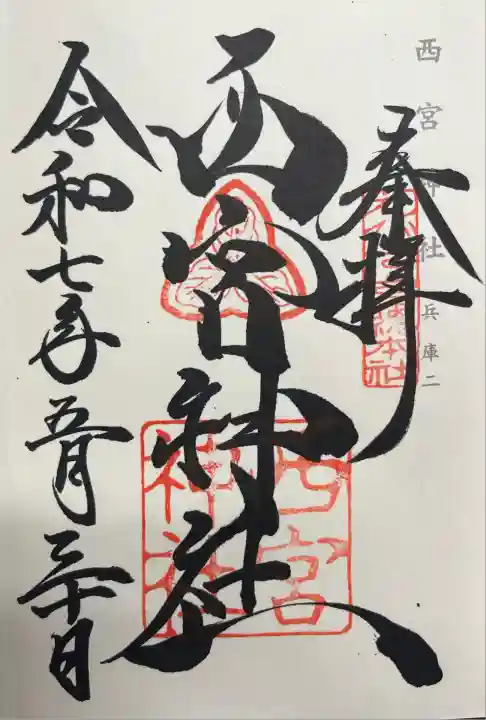 西宮神社 兵庫二
奉拝
西宮神社
令和七年五月三十日
西宮
神社